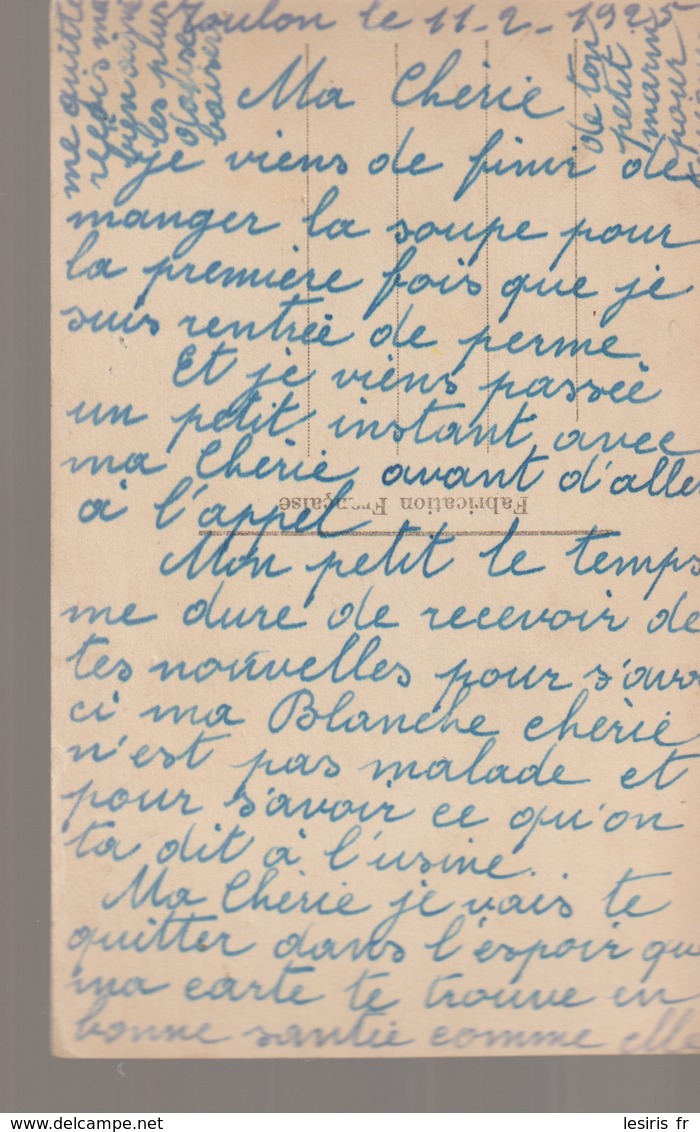 Toulon le 11-2-1925
Ma Chérie
je viens de finir de
manger la soupe pour
la première fois que je
suis rentrée de perme
Et je viens passée
un petit instant avec
ma Chérie avant d'alle
à l'appel
Mon petit le temps
me dure de recevoir de
tes nouvelles pour s'avoi
ci ma Blanche chérie
n'est pas malade et
pour s'avoir ce qu'on
ta dit à l'usine.
Ma Chérie je vais te
quitter dans l'espoir que
ma carte te trouve en
bonne santée comme elle
me quitte
reçois ma
bien aimé
les plus
doux
baiser
de ton
petit
marin
pour
Fabrication Française
lesiris fr